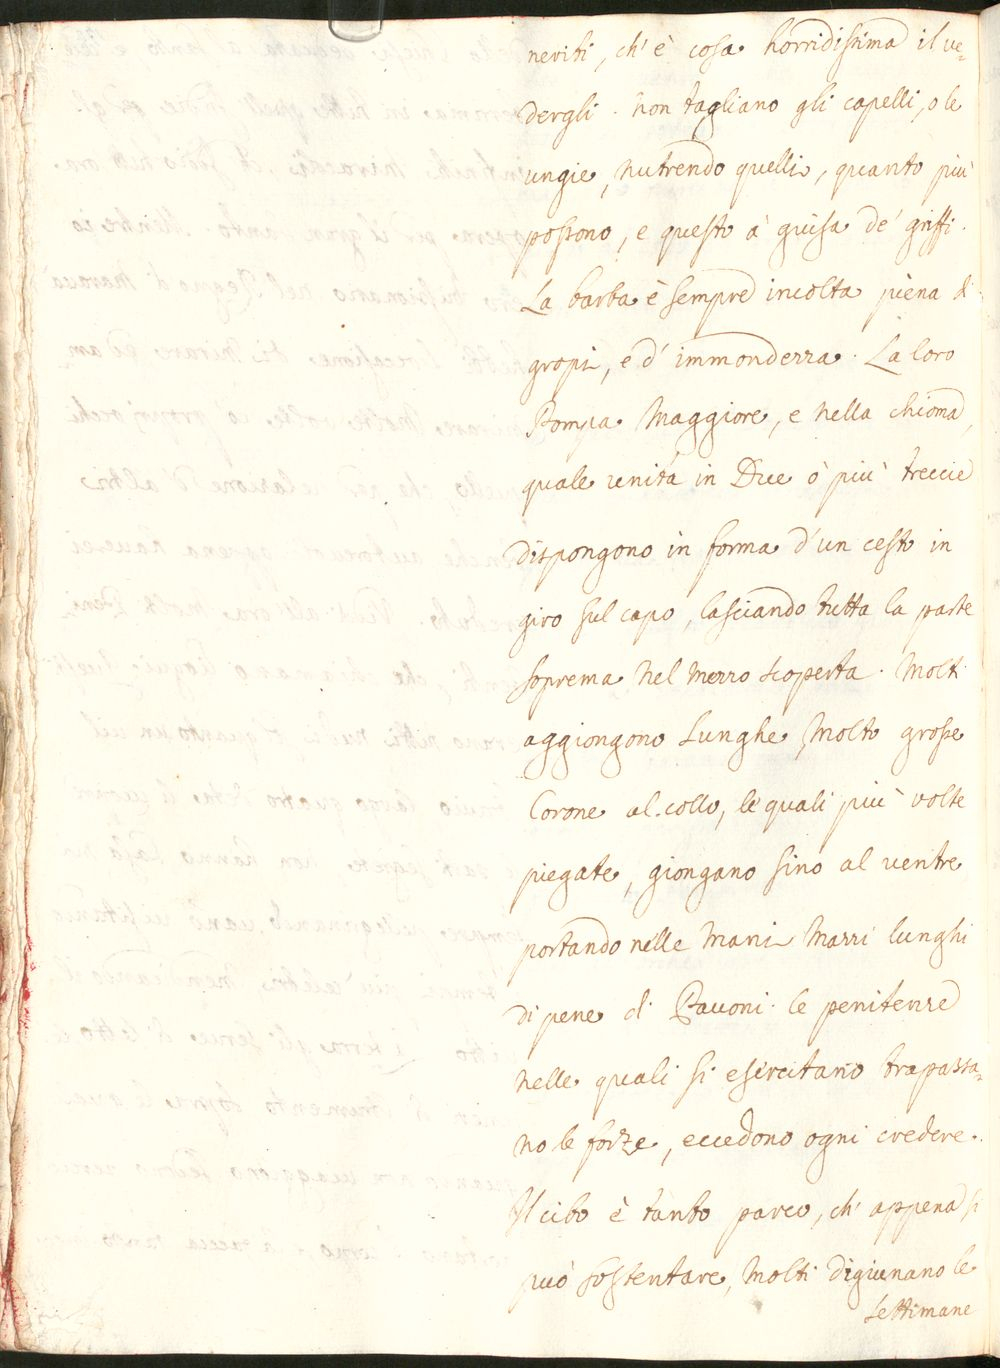 neriti, ch' è cosa horridissima il ve-
dergli. non tagliano gli capelli, o le
ungie, nutrendo quelli, quanto più
possono, e questo à guisa de' griffi.
La barba è sempre incolta piena di
gropi, e d' immondezza. La loro
Pompa Maggiore, e nella chioma,
quale unita in Due ò più treccie
dispongono in forma d'un cesto in
giro sul capo, lasciando tutta la parte
soprema nel mezzo scoperta. Molti
aggiongono lunghe, Molto grosse
Corone al collo, le quali più volte
piegate, giongano sino al ventre
portando nelle Mani Mazzi lunghi
di pene di Pavoni. le penitenze
nelle quali si esercitano trapassa-
no le forze, eccedono ogni credere.
Il cibo è tanto parco, ch' appena si
può sostentare, Molti digiunano le
settimane